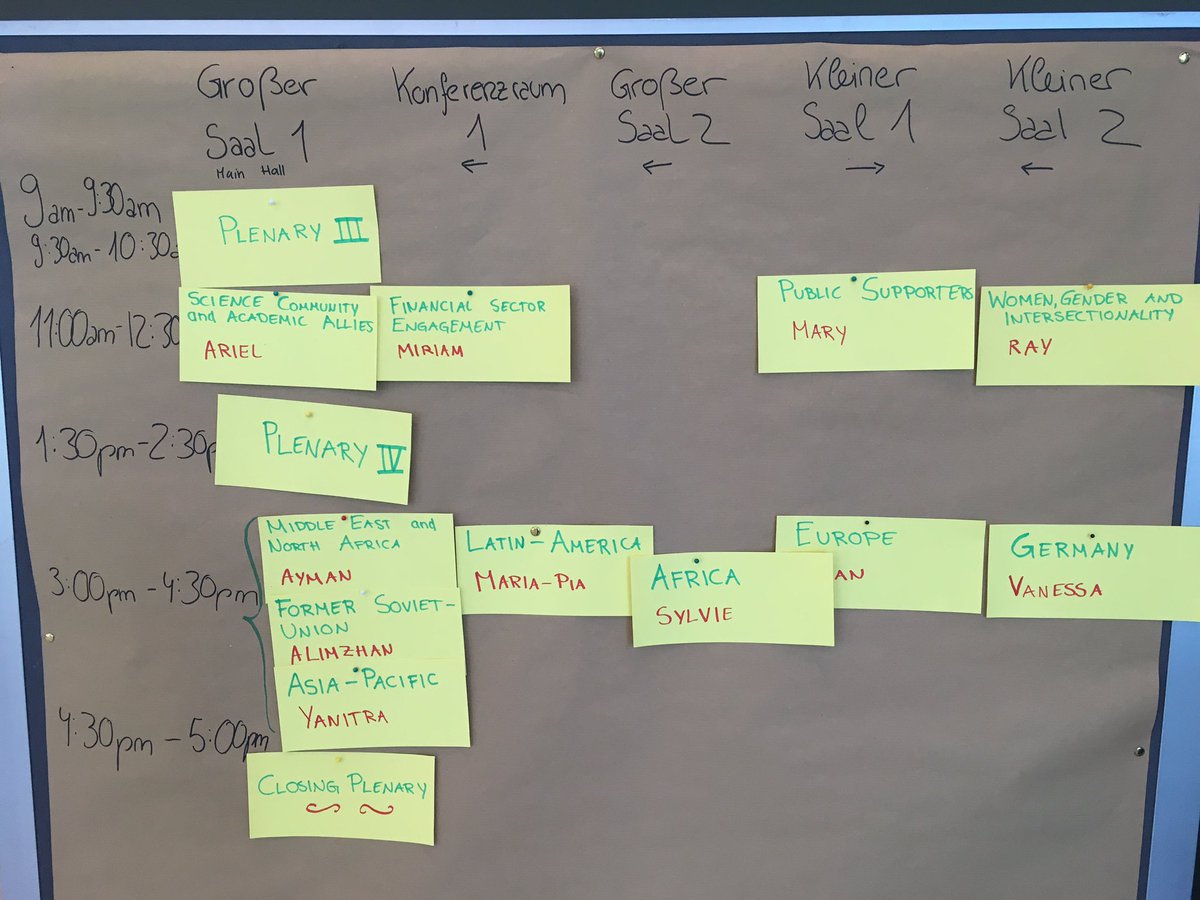 Großer
Saal 1
Main Hall
Konferenzraum
1
←
Großer
Saal 2
←
Kleiner
Saal 1
→
Kleiner
Saal 2
←
9am-9:30am
9:30am-10:30a
PLENARY III
11:00am-12:30
SCIENCE COMMUNITY
and ACADEMIC ALLIES
ARIEL
FINANCIAL SECTOR
ENGAGEMENT
MIRIAM
PUBLIC SUPPORTERS
MARY
WOMEN, GENDER AND
INTERSECTIONALITY
RAY
1:30pm-2:30p
PLENARY IV
3:00pm-4:30pm
MIDDLE EAST and
NORTH AFRICA
AYMAN
FORMER SOVIET-
UNION
ALIMZHAN
ASIA-PACIFIC
YANITRA
LATIN-AMERICA
MARIA-PIA
AFRICA
SYLVIE
EUROPE
AN
GERMANY
VANESSA
4:30pm-5:00pm
CLOSING PLENARY